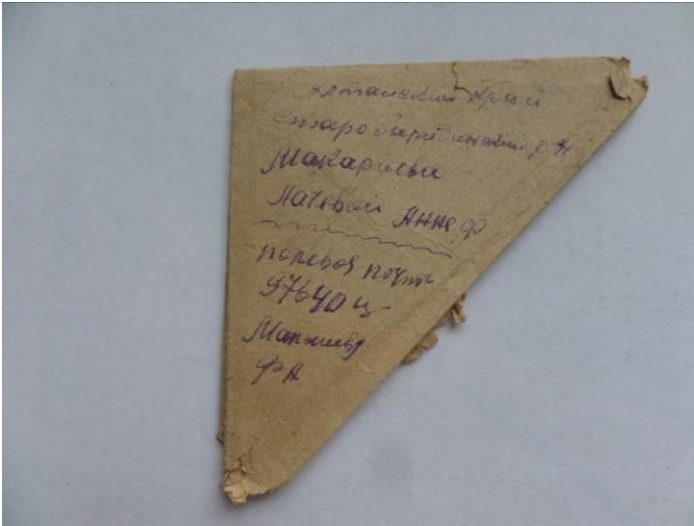 Алтайский Край
Старобардинский р-н
Макарьева
Лачевой Анне Ф
полевая почта
97640 ц
ФА